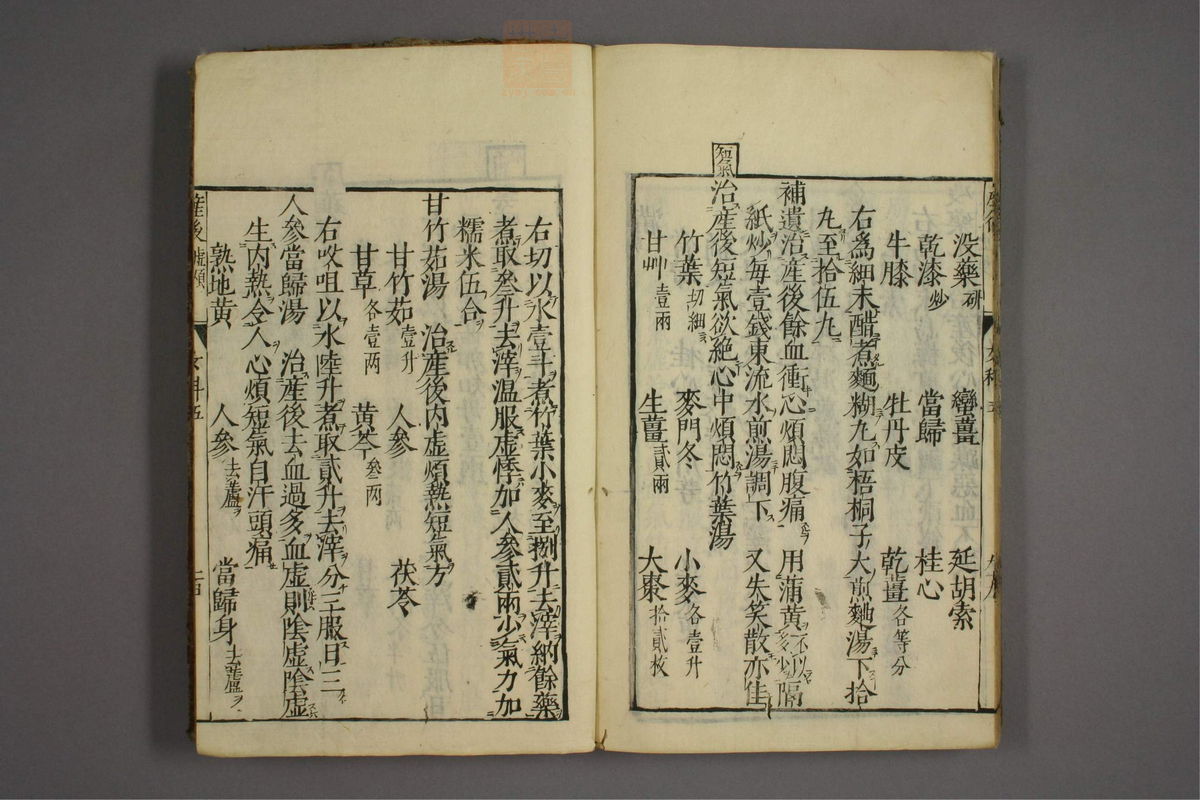 没藥研 蠻薑 延胡索
乾漆炒 當歸 桂心
牛膝 牡丹皮 乾薑各等分
右爲細末醋煮麵糊丸如梧桐子大煎麯湯下拾
丸至拾伍丸
補遺治産後餘血衝心煩悶腹痛 用蒲黄不以多少隔
紙炒每壹錢東流水煎湯調下 又失笑散亦佳
短氣
治産後短氣欲絶心中煩悶竹葉湯
竹葉切細 麥門冬 小麥各壹升
甘艸壹兩 生薑貳兩 大棗拾貳枚
右切以水壹斗煮竹葉小麥至捌升去滓納餘藥
煮取叁升去滓溫服虚悸加人參貳兩少氣力加
糯米伍合
甘竹茹湯 治産後内虚煩熱短氣方
甘竹茹壹升 人參 茯苓
甘草各壹两 黄芩叁两
右㕮咀以水陸升煮取貳升去滓分三服日三
人參當歸湯 治産後去血過多血虚則陰虚陰虚
生内熱令人心煩短氣自汗頭痛
熟地黄 人參去蘆 當歸身去蘆
産後 女科五